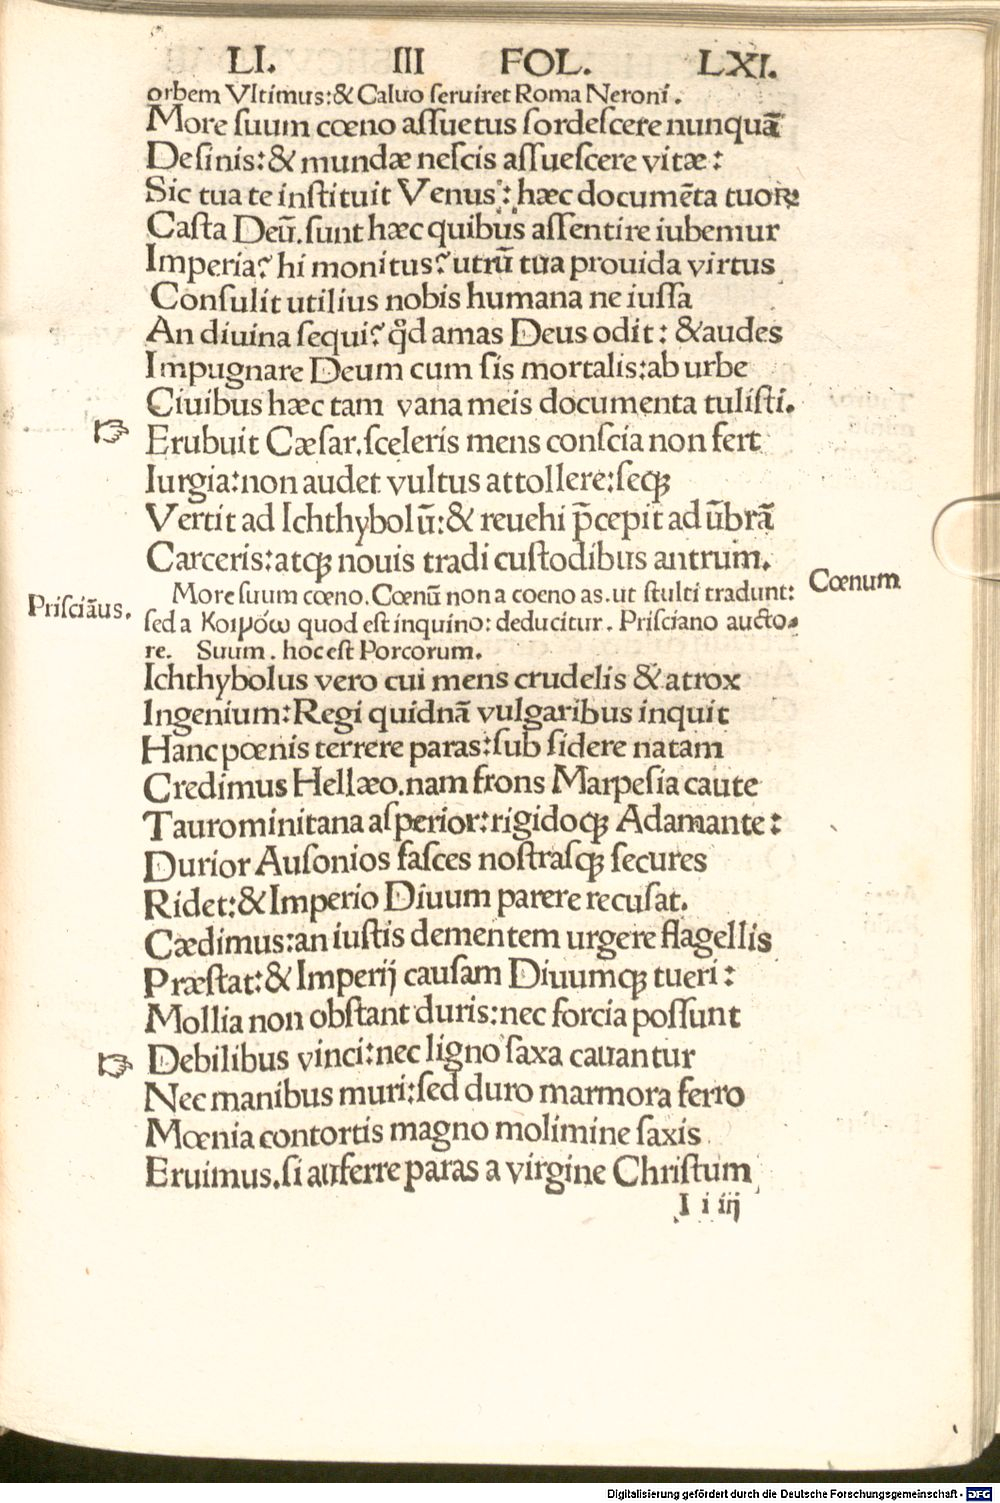 LI. III FOL. LXI.
orbem Vltimus: & Caluo ſeruiret Roma Neroni.
More ſuum cœno aſſuetus ſordeſcere nunquā
Deſinis: & mundæ neſcis aſſueſcere vitæ:
Sic tua te inſtituit Venus: hæc documēta tuoꝝ
Caſta Deū. ſunt hæc quibus aſſentire iubemur
Imperia? hi monitus? utrū tua prouida virtus
Conſulit utilius nobis humana ne iuſſa
An diuina ſequi? qd̛ amas Deus odit: & audes
Impugnare Deum cum ſis mortalis: ab urbe
Ciuibus hæc tam vana meis documenta tuliſti.
☞ Erubuit Cæſar. ſceleris mens conſcia non fert
Iurgia: non audet vultus attollere: ſeqꝫ
Vertit ad Ichthybolū: & reuehi p̄cepit ad ūbrā
Carceris: atqꝫ nouis tradi cuſtodibus antrum.
More suum cœno. Cœnū non a coeno as. ut ſtulti tradunt:
Cœnum
Priſciāus.
ſed a Κοιμόω quod eſt inquino: deducitur. Priſciano aucto-
re. Suum. hoc eſt Porcorum.
Ichthybolus vero cui mens crudelis & atrox
Ingenium: Regi quidnā vulgaribus inquit
Hanc pœnis terrere paras: ſub ſidere natam
Credimus Hellæo. nam frons Marpeſia caute
Taurominitana aſperior: rigidoqꝫ Adamante:
Durior Auſonios faſces noſtraſqꝫ ſecures
Ridet: & Imperio Diuum parere recuſat.
Cædimus: an iuſtis dementem urgere flagellis
Præſtat: & Imperij cauſam Diuumqꝫ tueri:
Mollia non obſtant duris: nec forcia poſſunt
☞ Debilibus vinci: nec ligno ſaxa cauantur
Nec manibus muri: ſed duro marmora ferro
Mœnia contortis magno molimine ſaxis
Eruimus. ſi auferre paras a virgine Chriſtum
I i iij
Digitalisierung gefördert durch die Deutsche Forschungsgemeinschaft - DFG